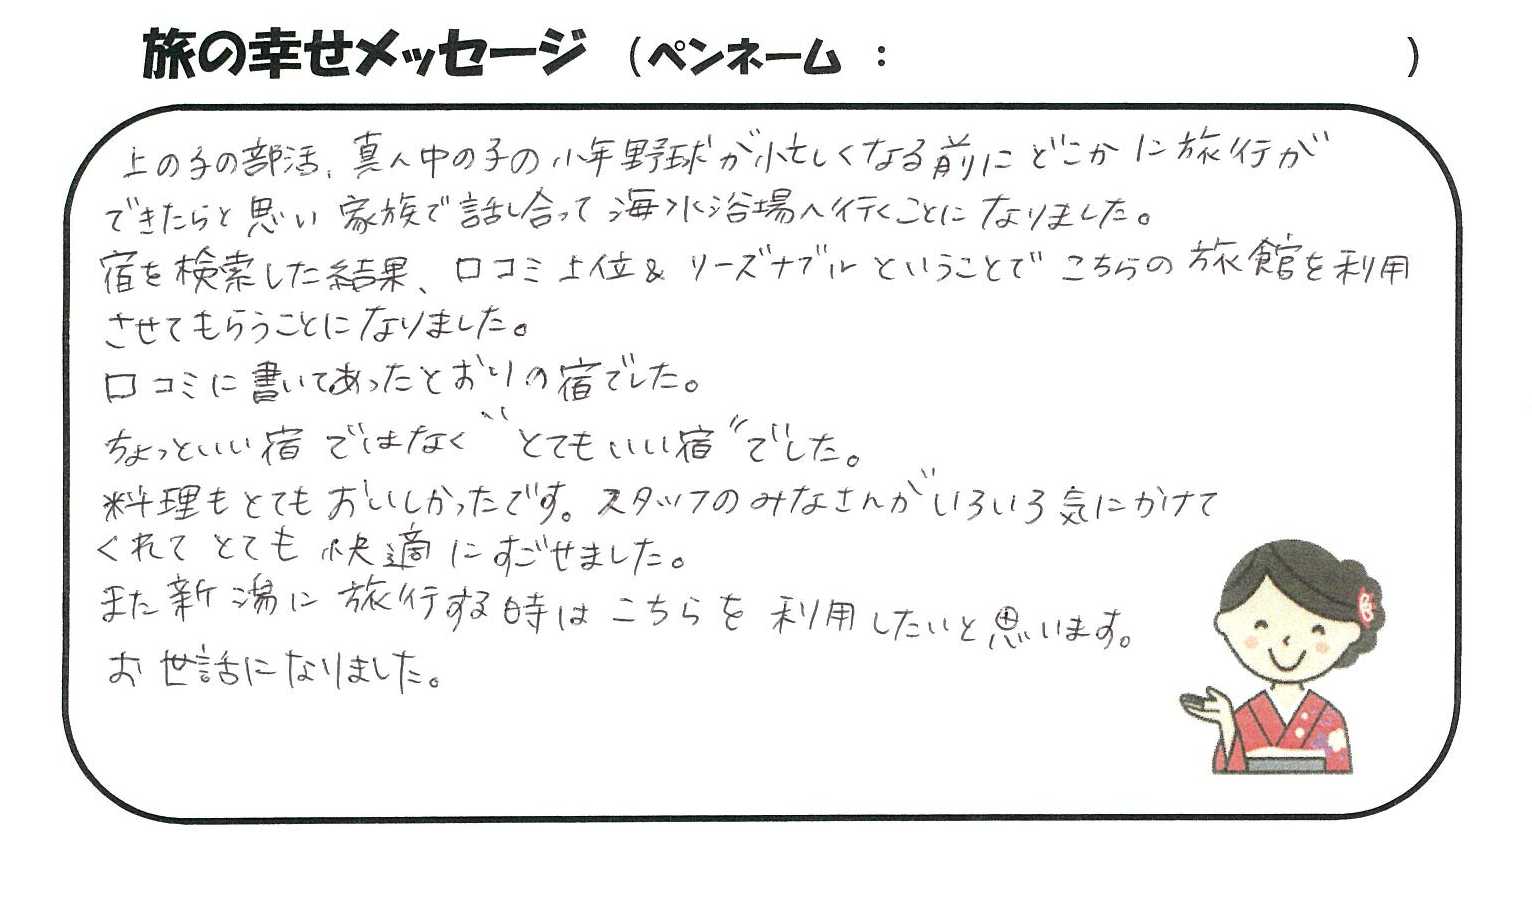 旅の幸せメッセージ (ペンネーム : )
上の子の部活、真ん中の子の少年野球が忙しくなる前にどこかに旅行が
できたらと思い家族で話し合って海水浴場へ行くことになりました。
宿を検索した結果、口コミ上位&リーズナブルということでこちらの旅館を利用
させてもらうことになりました。
口コミに書いてあったとおりの宿でした。
ちょっといい宿ではなく“とてもいい宿”でした。
料理もとてもおいしかったです。スタッフのみなさんがいろいろ気にかけて
くれてとても快適にすごせました。
また新潟に旅行する時はこちらを利用したいと思います。
お世話になりました。